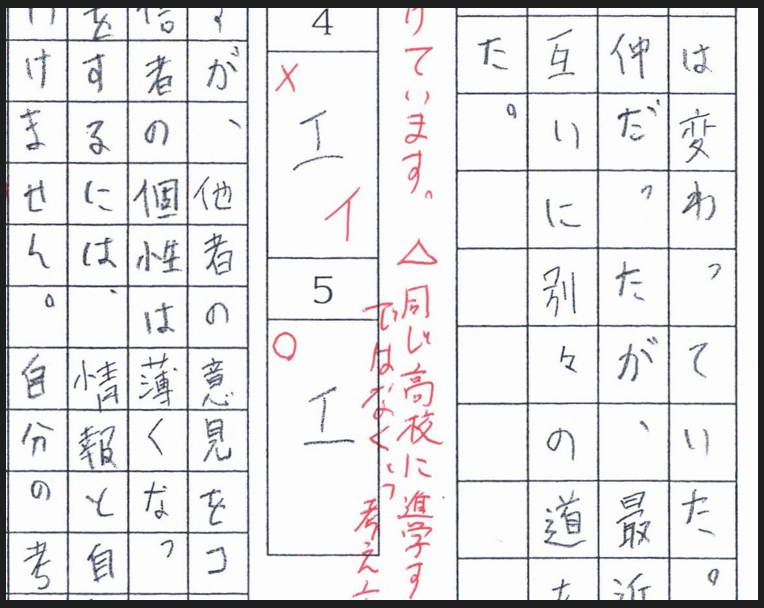 は変わっていた。
仲だったが、最近
互いに別々の道
た。
けています。
△同じ高校に進学す
ではなく、
4
×
エ
イ
5
○
エ
が、他者の意見をコ
信者の個性は薄くなっ
をするには、情報と自
けません。自分の考